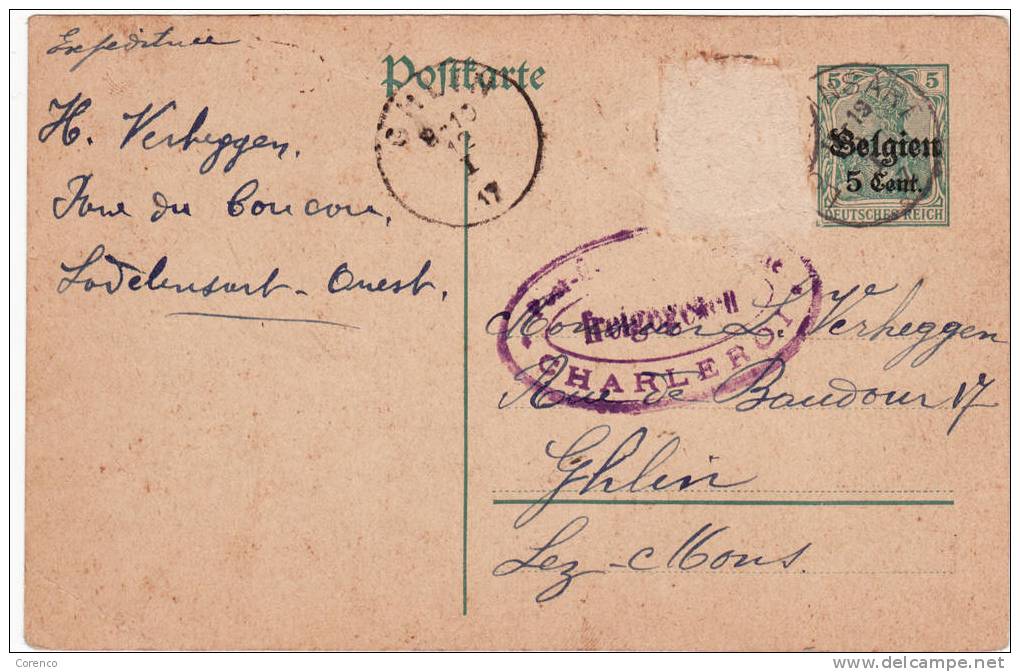 Expeditrice
H. Verheggen,
du
Lodelinsart - Ouest.
Postkarte
GHLIN
12
I
17
5 5
Belgien
5 Cent.
DEUTSCHES REICH
freigegeben
CHARLEROI
Monsieur L. Verheggen
Rue de Baudour 17
Ghlin
Lez-Mons.
Corenco
www.delcampe.net